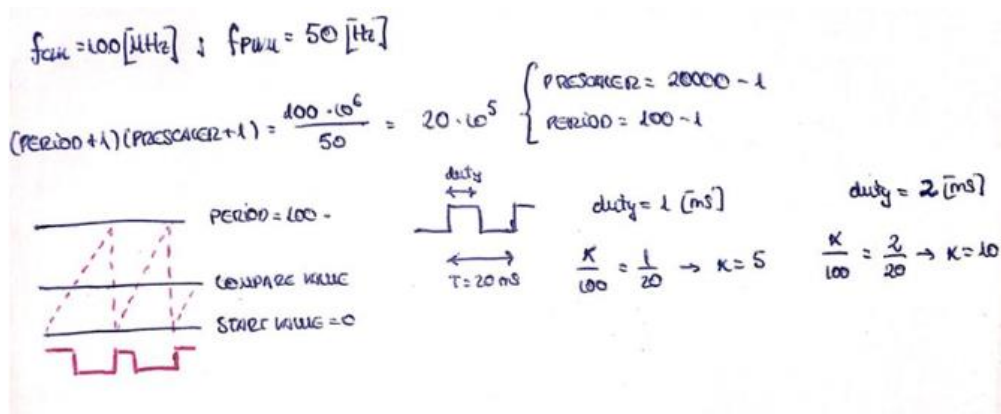 fCLK = 100 [MHz] ; fPWM = 50 [Hz]
(PERIOD+1)(PRESCALER+1) = 100·10^6 / 50 = 20·10^5 { PRESCALER = 20000 - 1
PERIOD = 100 - 1
PERIOD = 100 -
COMPARE VALUE
START VALUE = 0
duty
T = 20 ms
duty = 1 [ms]
K/100 = 1/20 → K = 5
duty = 2 [ms]
K/100 = 2/20 → K = 10